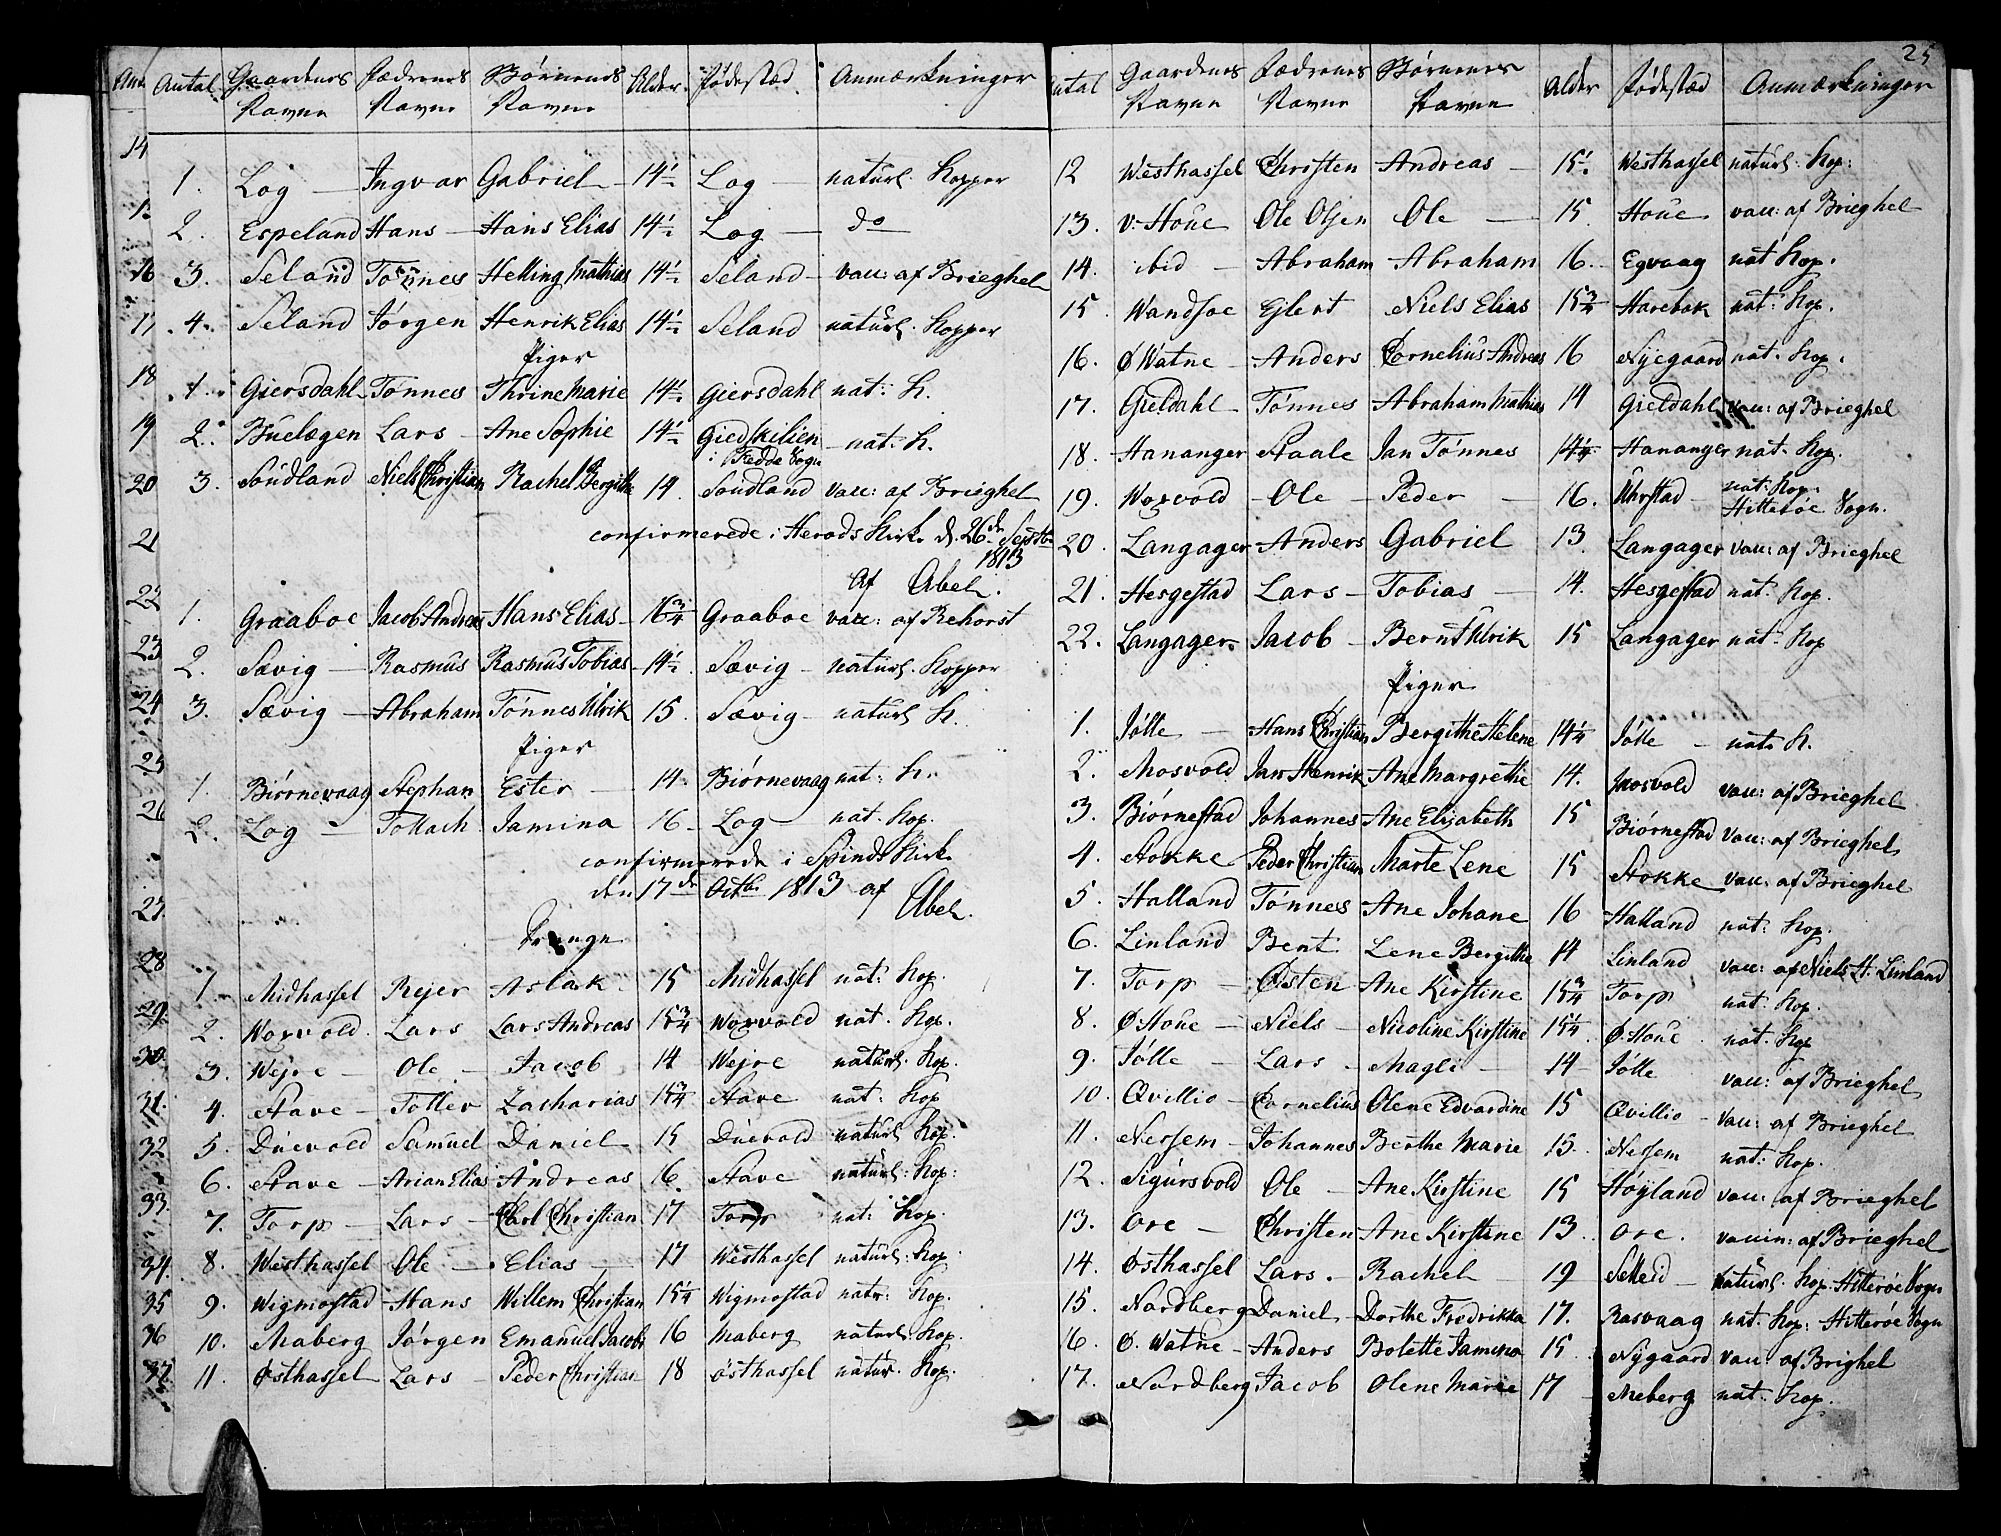 Antal Gaardenes Navne Fædrenes Navne Børnenes Navne Alder Fødestæd Anmærkninger
1. Log — Ingvar Gabriel — 14½ Log — naturl. Kopper
2. Espeland Hans — Hans Elias 14½ Log — do
3. Seland Tönnes Helling Mathias 14½ Seland — vac: af Brieghel
4. Seland Jörgen Henrik Elias 14½ Seland naturl. Kopper
Piger
1. Giersdahl Tönnes Thrine Marie 14½ Giersdahl nat: K.
2. Buelægen Lars — Ane Sophie 14½ Giedskilien i Fedde Sogn — nat. K.
3. Sóudland Niels Christian Rachel Bergithe 14 Soudland vac: af Brieghel
confirmerede i Herads Kirke d. 26de Septbr
1813
Af Abel.
1. Graaboe Jacob Andreas Hans Elias — 16¾ Graaboe vac: af Rehorst
2. Sævig — Rasmus Rasmus Tobias 14½ Sævig — naturl. Kopper
3. Sævig — Abraham Tónnes Ulrik 15. Sævig — naturl K.
Piger
1. Biórnevaag Stephan Ester — 14. Biórnevaag nat: K.
2. Log — Tollach Jamina 16 — Log — nat. Kop.
confirmerede i Spinds Kirke
den 17de Octbr 1813 af
Abel.
Drenge
1. Midhassel Rejer Aslak 15 Midhassel nat: Kop.
2. Woxvold. Lars Lars Andreas 15¾ Woxvold nat. Kop.
3. Wejre — Ole — Jacob 14 Wejre naturl. Kop.
4. Stave — Tollev Zacharias 15¾ Stave nat: Kop
5. Duevold Samuel Daniel 15 Duevold naturl Kop.
6. Stave — Arian Elias Andreas 16. Stave naturl: Kop:
7. Torp — Lars — Carl Christian 17 Torp nat: Kop.
8. Westhassel Ole — Elias — 17 Westhassel naturl: Kop.
9. Wigmostad Hans Willem Christian 15¼ Wigmostad natr: Kop.
10. Maberg Jórgen Emanuel Jacob 16 Maberg naturl. Kop.
11. Osthassel Lars — Peder Christian 18 Osthassel natur. Kop.
25
Antal Gaardenes Navne Fædrenes Navne Børnenes Navne Alder Fødestæd Anmærkninger
12 Westhassel Christen Andreas — 15½ Westhassel naturl: Kop:
13. V: Houe Ole Olsen Ole — 15 Houe vac: af Brieghel
14. ibid — Abraham Abraham 16. Egvaag nat Kop.
15. Wandsoe Ejlert Niels Elias 15¾ Harebak nat: Kop.
16. Ø Watne — Anders Cornelius Andreas 16 Nyegaard nat. Kop.
17. Gieldahl — Tónnes Abraham Mathias 14 Gieldahl vac: af Brieghel
18. Hananger Staale Jan Tónnes 14¼ Hananger nat. Kop.
19. Woxvold — Ole — Peder — 16. Uhrstad — nat: Kop. Hitteróe Sogn.
20. Langager Anders Gabriel 13. Langager vac: af Brieghel
21. Hesgestad Lars — Tobias — 14. Hesgestad nat. Kop.
22. Langager Jacob — Bernt Ulrik 15 Langager nat: Kop
Piger
1. Jólle — Hans Christian Bergithe Helene 14¼ Jólle — nat. K.
2. Mosvold Jan Henrik Ane Margrethe 14. Mosvold vac: af Brieghel
3. Biórnestad Johannes Ane Elisabeth 15 Biórnestad vac: af Brieghel
4. Stokke Peder Christian Marte Lene 15 Stokke vac: af Brieghel
5. Halland Tónnes Ane Johane 16 Halland nat: Kop.
6. Linland Bent Lene Bergithe 14 Linland vac: af Niels H. Linland
7. Torp — Östen Ane Kirstine 15¾ Torp nat: Kop.
8. Ø: Houe — Niels — Nicoline Kirstine 15¼ Ø: Houe nat. Kop
9. Jólle — Lars — Magli — 14 Jólle vac: af Brieghel
10. Qvillio — Cornelius Olene Edvardine 15 Qvillio — vac: af Brieghel
11. Nessem — Johannes Berthe Marie 15. Nessem nat: Kop.
12. Sigursvold Ole — Ane Kirstine 15 Hóyland vac: af Brieghel
13. Ore — Christen Ane Kirstine 13. Ore. vaccin: af Brieghel
14. Osthassel Lars. — Rachel 19 Selleid — naturl. Kop. Hitteróe Sogn
15. Nordberg Daniel Dorthe Fredrikka 17. Rasvaag nat. Kop: Hitteróe Sogn
16. Ø. Watne — Anders Bolette Jamina 15 Nygaard vac: af Brighel
17. Nordberg Jacob Olene Marie 17 Meberg nat. Kop.